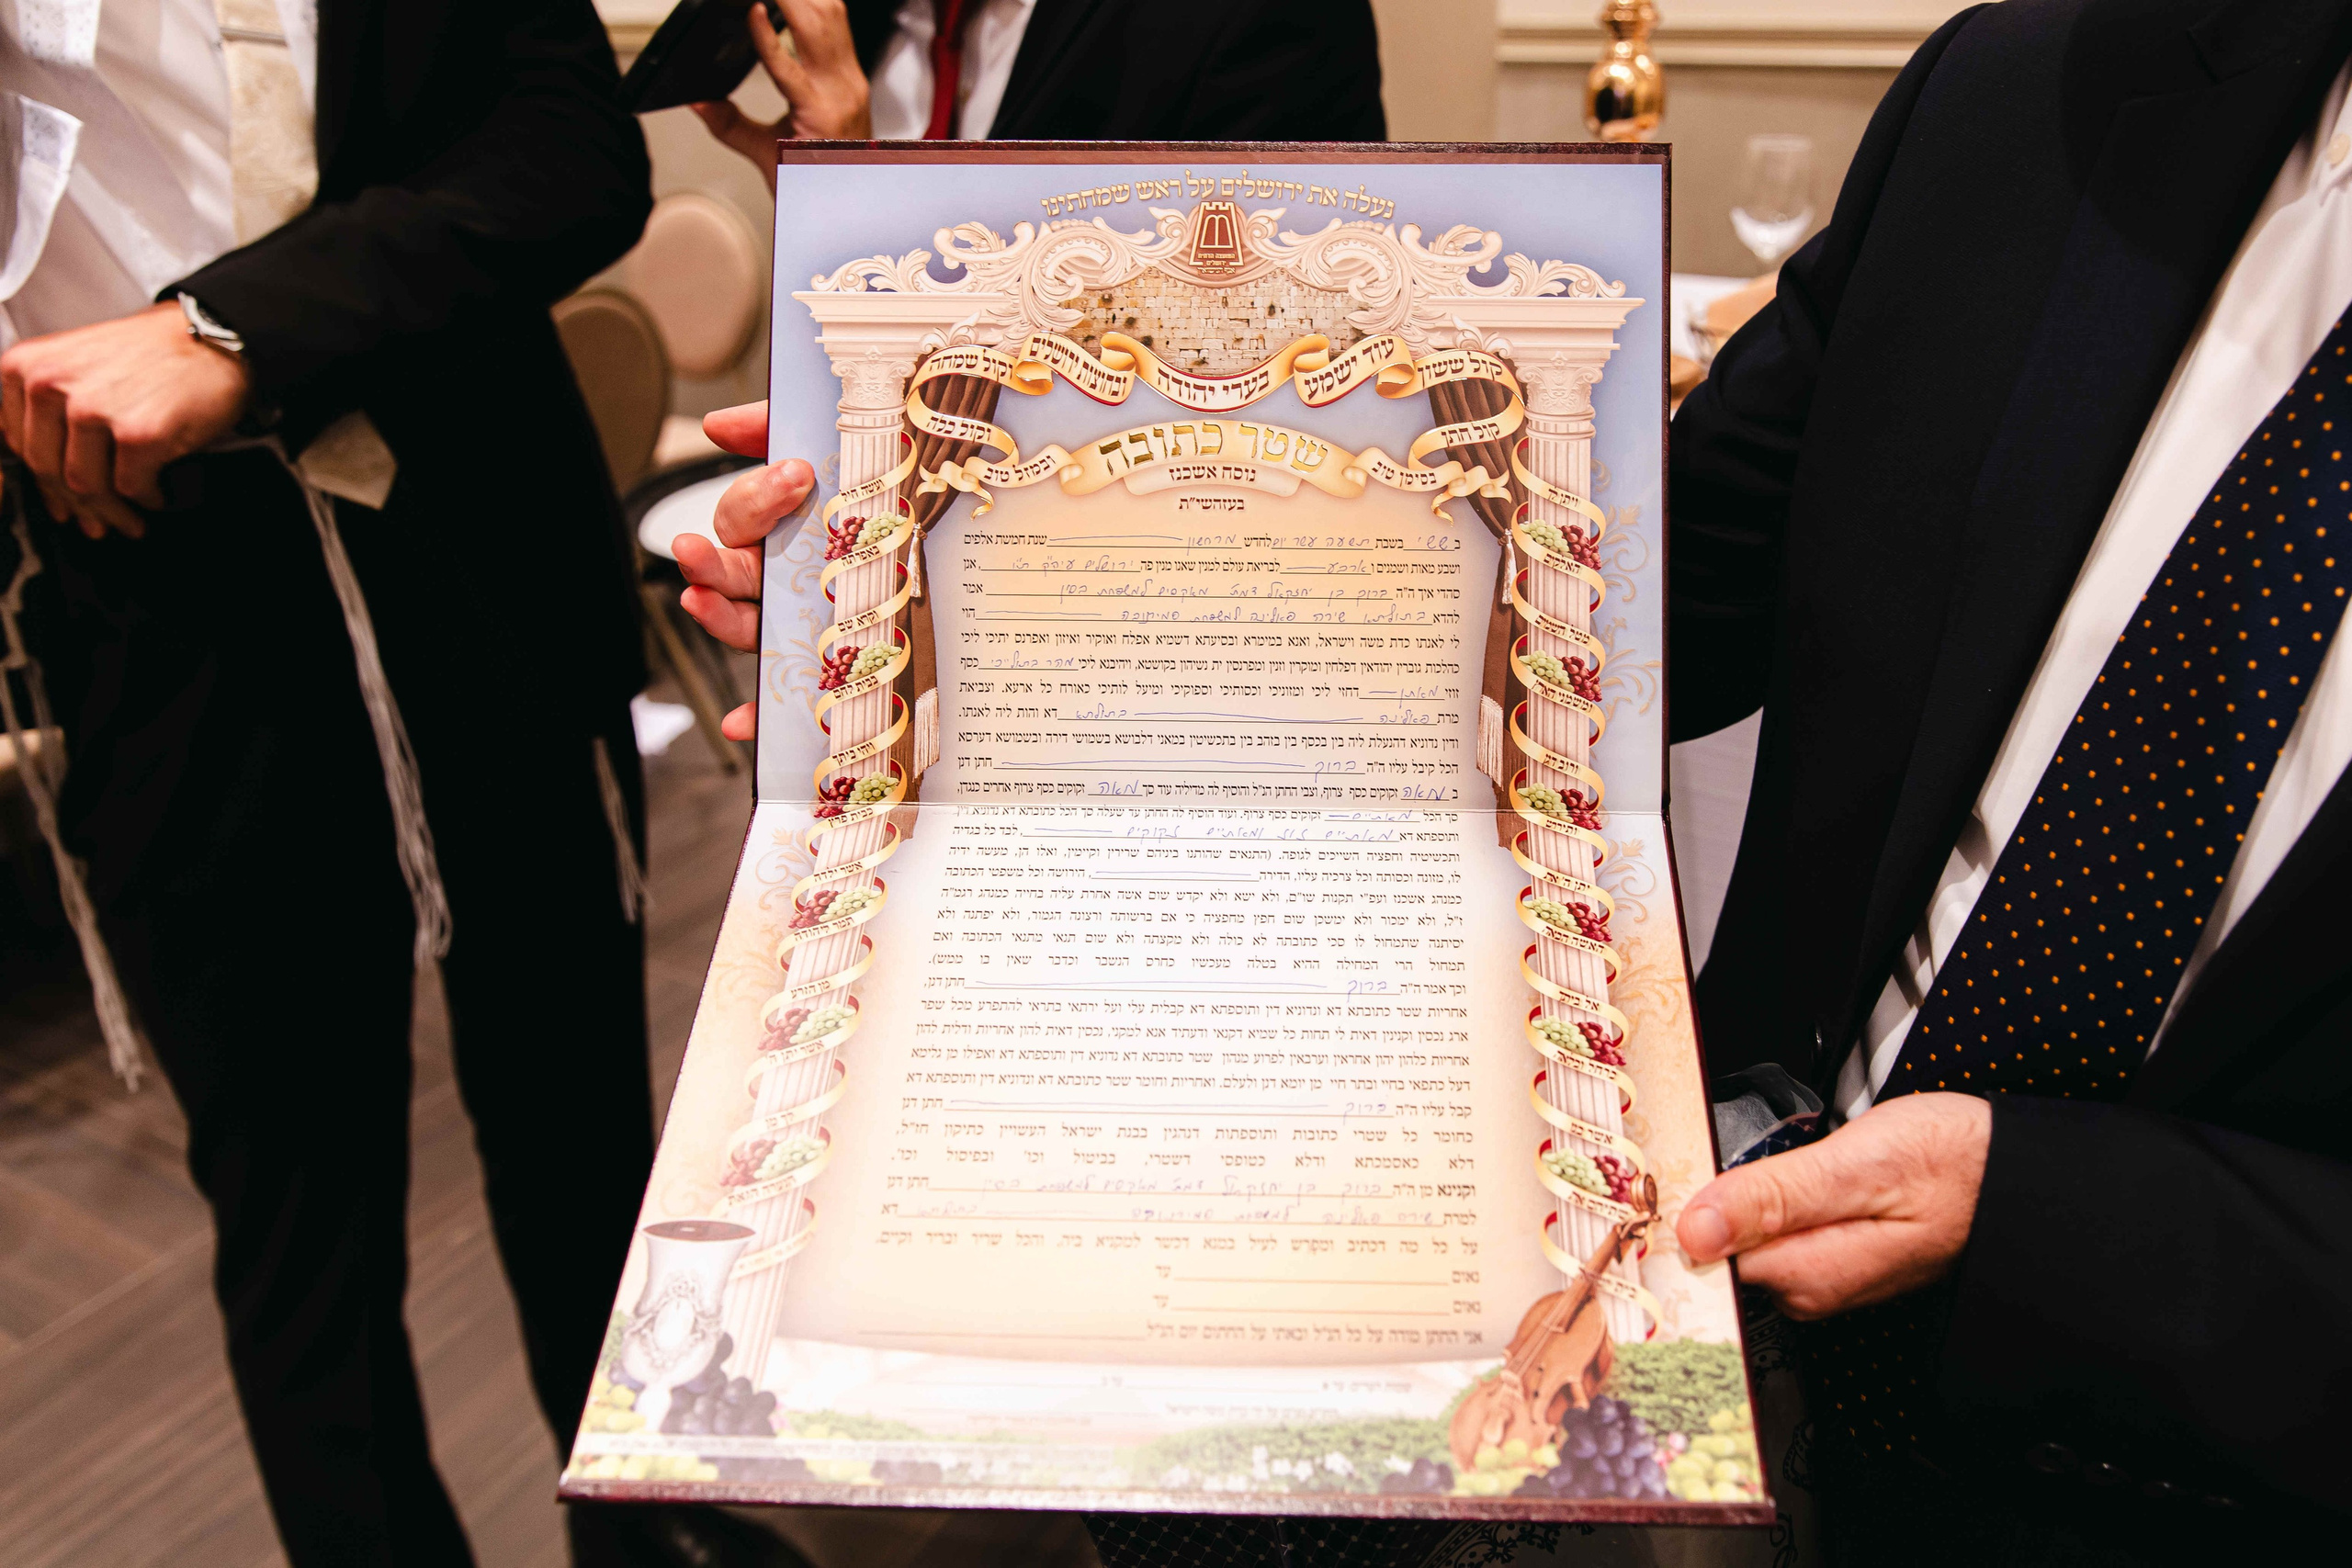 נעלה את ירושלים על ראש שמחתינו
קול ששון
עוד ישמע
בערי יהודה
ובחוצות ירושלים
וקול שמחה
קול חתן
וקול כלה
שטר כתובה
בסימן טוב
ובמזל טוב
נוסח אשכנז
בעזהשי"ת
ב ששי בשבת תשעה עשר יום לחדש מרחשון שנת חמשת אלפים
ושבע מאות ושמנים וארבע לבריאת עולם למנין שאנו מנין פה ירושלים עיה"ק ת"ו, אנן
סהדי איך ה"ה ברוך בן יחזקאל דמת' מאקסים למשפחת בסין אמר
להדא בתולתא שירה פאולינה למשפחת הוי
לי לאנתו כדת משה וישראל, ואנא במימרא ובסיעתא דשמיא אפלח ואוקיר ואיזון ואפרנס יתיכי ליכי
כהלכות גוברין יהודאין דפלחין ומוקרין וזנין ומפרנסין ית נשיהון בקושטא, ויהיבנא ליכי מהר בתוליכי כסף
זוזי מאתן דחזי ליכי ומזוניכי וכסותיכי וספוקיכי ומיעל לותיכי כאורח כל ארעא. וצביאת
מרת פאולינה בתולתא דא והות ליה לאנתו.
ודין נדוניא דהנעלת ליה בין בכסף בין בזהב בין בתכשיטין במאני דלבושא בשמושי דירה ובשמושא דערסא
הכל קיבל עליו ה"ה ברוך חתן דנן
ב מאה זקוקים כסף צרוף, וצבי החתן הנ"ל והוסיף לה מדיליה עוד סך מאה זקוקים כסף צרוף אחרים כנגדן,
סך הכל מאתיים זקוקים כסף צרוף. ועוד הוסיף לה החתן עד שעלה סך הכל כתובתא דא נדוניא דין
ותוספתא דא מאתיים זוז ומאתיים זקוקים, לבד כל בגדיה
ותכשיטיה וחפציה השייכים לגופה. (התנאים שהותנו ביניהם שרירין וקיימין, ואלו הן, מעשה ידיה
לו, מזונה וכסותה וכל צרכיה עליו, הדירה, הירושה וכל משפטי הכתובה
כמנהג אשכנז ועפ"י תקנות שו"ם, ולא ישא ולא יקדש שום אשה אחרת עליה בחייה כמנהג רגמ"ה
ז"ל, ולא ימכור ולא ימשכן שום חפץ מחפציה כי אם ברשותה ורצונה הגמור, ולא יפתנה ולא
יסיתנה שתמחול לו סכי כתובתה לא כולה ולא מקצתה ולא שום תנאי מתנאי הכתובה ואם
תמחול הרי המחילה ההיא בטלה מעכשיו כחרס הנשבר וכדבר שאין בו ממש).
וכך אמר ה"ה ברוך חתן דנן,
אחריות שטר כתובתא דא ונדוניא דין ותוספתא דא קבלית עלי ועל ירתאי בתראי להתפרע מכל שפר
ארג נכסין וקנינין דאית לי תחות כל שמיא דקנאי ודעתיד אנא למקני, נכסין דאית להון אחריות ודלית להון
אחריות כלהון יהון אחראין וערבאין לפרוע מנהון שטר כתובתא דא נדוניא דין ותוספתא דא ואפילו מן גלימא
דעל כתפאי בחיי ובתר חיי מן יומא דנן ולעלם. ואחריות וחומר שטר כתובתא דא ונדוניא דין ותוספתא דא
קבל עליו ה"ה ברוך חתן דנן
כחומר כל שטרי כתובות ותוספתות דנהגין בבנת ישראל העשויין כתיקון חז"ל,
דלא כאסמכתא ודלא כטופסי דשטרי, בביטול וכו' ובפיסול וכו'.
וקנינא מן ה"ה ברוך בן יחזקאל דמת' מאקסים למשפחת בסין חתן דנן
למרת שירה פאולינה למשפחת בתולתא דא
על כל מה דכתיב ומפרש לעיל במנא דכשר למקניא ביה, והכל שריר ובריר וקיים.
נאום עד
נאום עד
אני החתן מודה על כל הנ"ל ובאתי על החתום יום הנ"ל
ויתן לך
האלקים
מטל השמים
ומשמני הארץ
ורוב דגן
ותירוש
יתן ה' את
האשה הבאה
אל ביתך
כרחל וכלאה
אשר בנו
שתיהם את
בית
ועשה חיל
באפרתה
וקרא שם
בבית לחם
ויהי ביתך
כבית פרץ
אשר ילדה
תמר ליהודה
מן הזרע
אשר יתן ה'
לך מן
הנערה הזאת